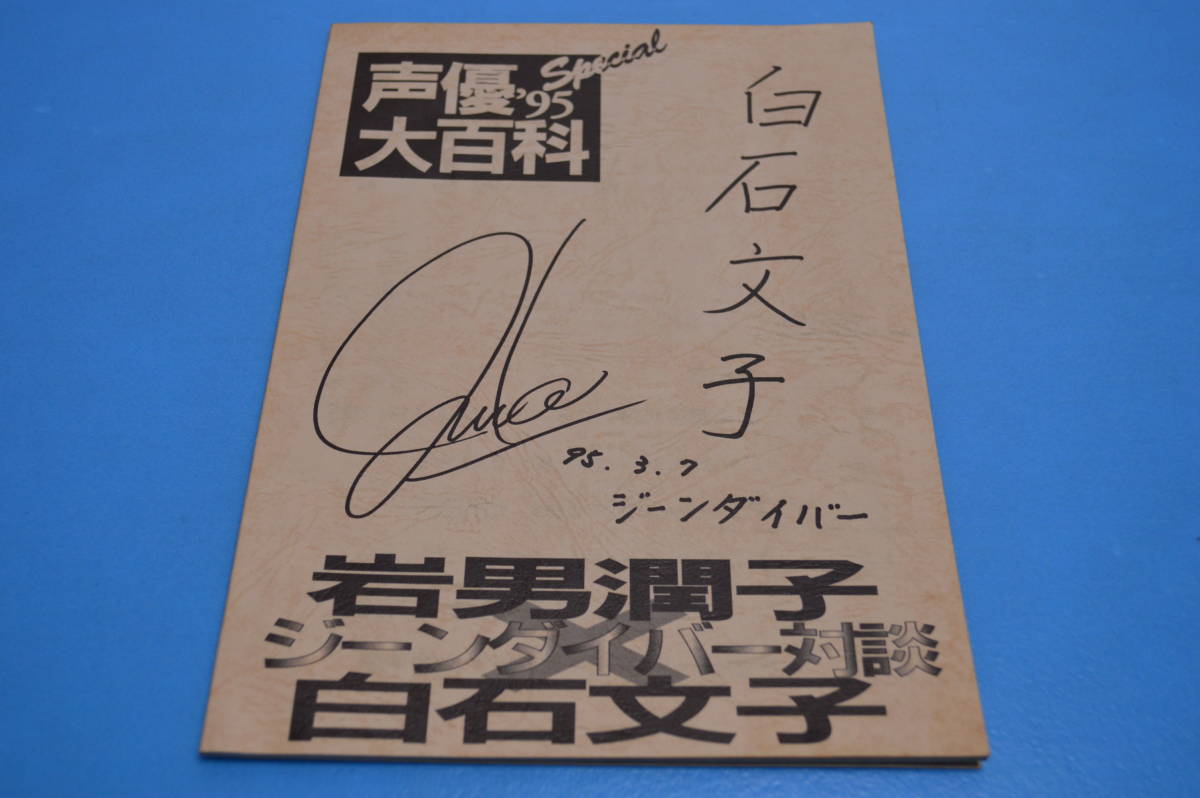 声優'95 Special
大百科
白石文子
95.3.7
ジーンダイバー
岩男潤子
×
ジーンダイバー対談
白石文子